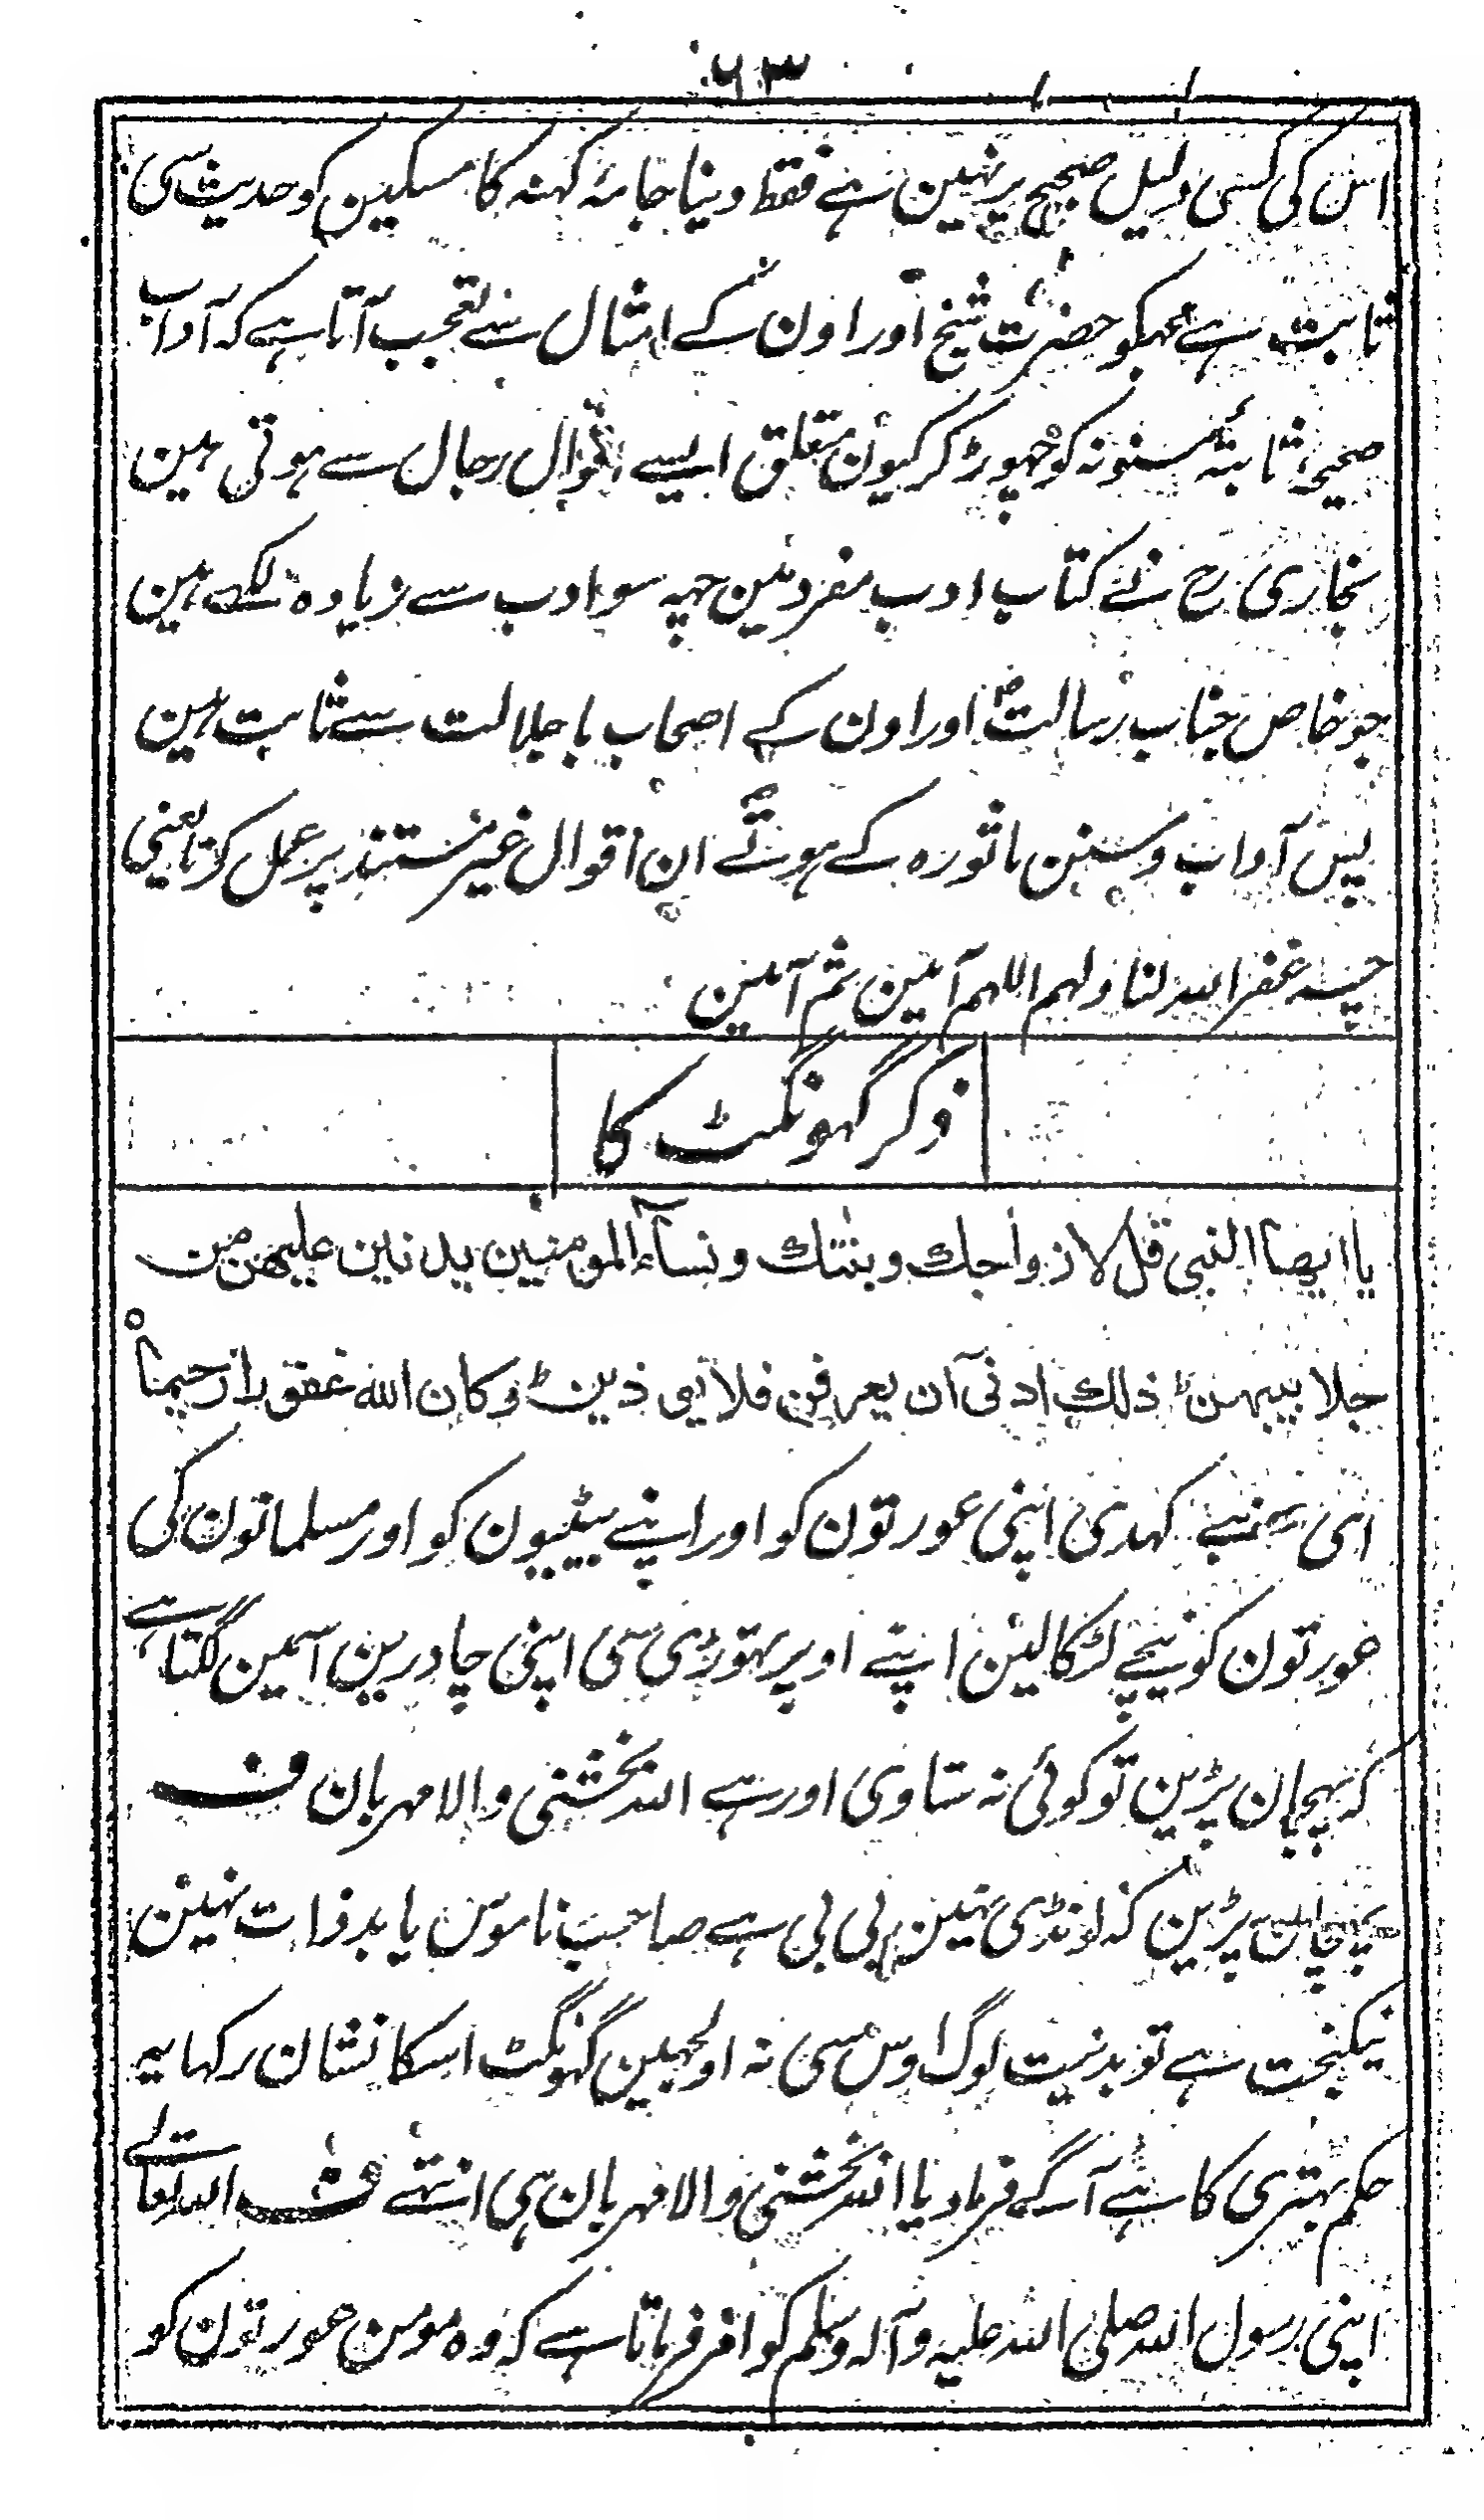 ۶۳
اس کی کسی دلیل صحیح پر نہین ہے فقط دینا جامۂ کہنہ کا مسکین کو حدیث سی
ثابت ہے مجکو حضرت شیخ اور اون کے امثال سے تعجب آتا ہے کہ آداب
صحیحہ ثابتہ مسنونہ کو چہوڑ کر کیون متعلق ایسے اقوال رجال سے ہوتی ہین
بخاری رح نے کتاب ادب مفرد مین چہہ سو ادب سے زیادہ لکہے ہین
جو خاص جناب رسالتؐ اور اون کے اصحاب با جلالت سے ثابت ہین
پس آداب و سنن ماثورہ کے ہوتے ان اقوال غیر مستند پر عمل کرنا یعنی
چہ غفر اللہ لنا ولہم اللہم آمین ثم آمین
ذکر گہونگٹ کا
یا ایھا النبی قل لازواجك وبنتك ونسآء المومنین یدنین علیھن من
جلابیبہن ط ذلك ادنی آن یعرفن فلا یوذین ط وکان الله غفورا رحیما ○
ای کہدی اپنی عورتون کو اور اپنے بیٹیون کو اور مسلمانون کی
عورتون کو نیچے لٹکا لین اپنے اوپر تہوڑی سی اپنی چادرین اسمین لگتا ہے
کہ پہچان پڑین تو کوئی نہ ستاوی اور ہے اللہ بخشنی والا مہربان ف
پہچان پڑین کہ لونڈی نہین بی بی ہے صاحب ناموس یا بدذات نہین
نیکبخت ہے تو بدنیت لوگ اوس سی نہ اولجہین گہونگٹ اسکا نشان رکہا یہ
حکم بہتری کا ہے آگے فرما دیا اللہ بخشنی والا مہربان ہی انتہے ف اللہ تعالے
اپنی رسول اللہ صلی اللہ علیہ وآلہ وسلم کو امر فرماتا ہے کہ وہ مومن عورتون کو